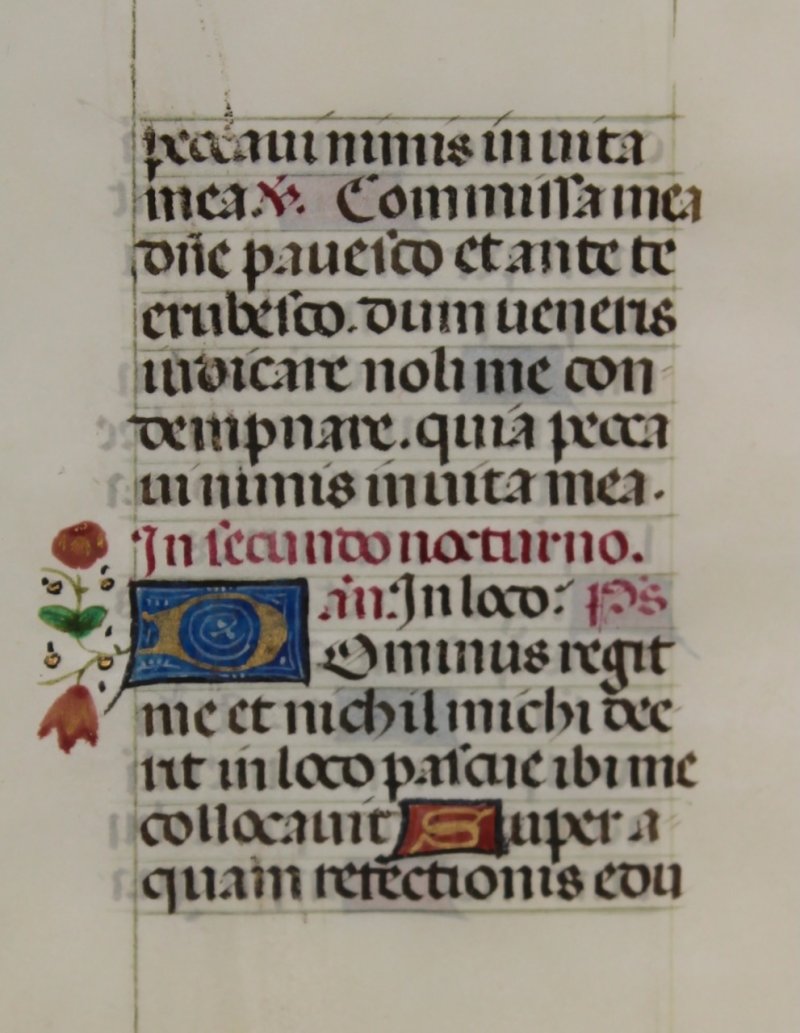 peccaui nimis in uita
mea. ℣. Commissa mea
dñe pauesco et ante te
erubesco. dum ueneris
iudicare noli me con
dempnare. quia pecca
ui nimis in uita mea.
In secundo nocturno.
añ. In loco. Ps
Dominus regit
me et nichil michi dee
rit in loco pascue ibi me
collocauit Super a
quam refectionis edu